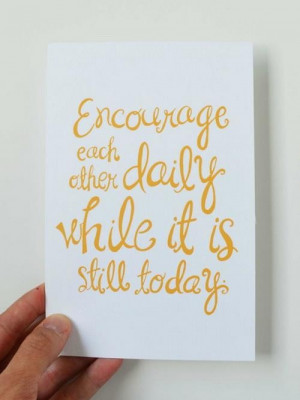 Encourage
each
other daily
while it is
still today.